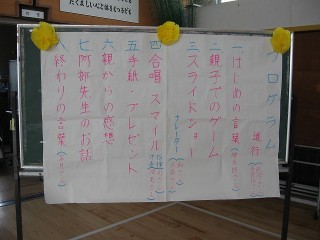 たくましい心と体をもつ子ども
プログラム
進行
一 はじめの言葉
二 親子でのゲーム
三 スライドショー
ナレーター
四 合唱 スマイル
五 手紙・プレゼント
六 親からの感想
七 阿部先生のお話
八 終わりの言葉